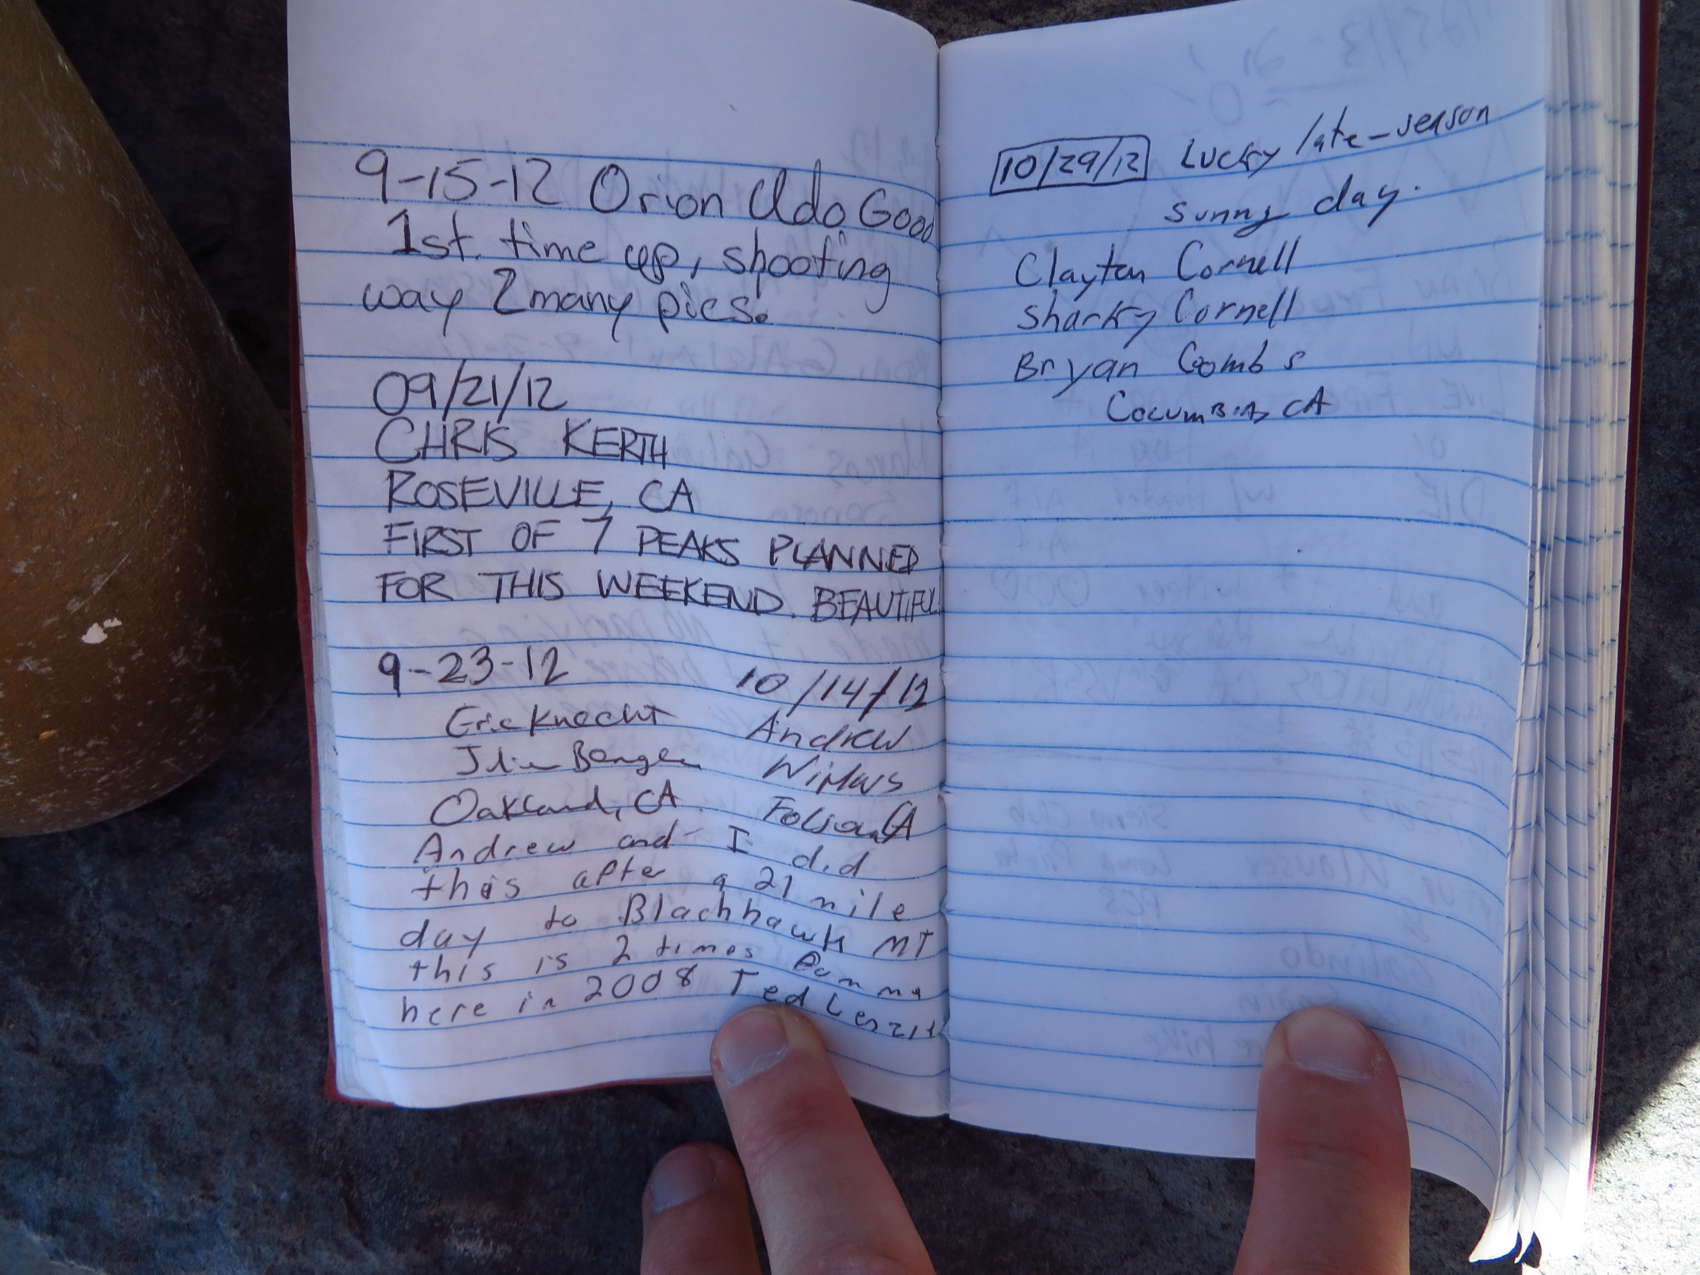 9-15-12 Orion Udo Good
1st. time up, shooting
way 2 many pics.
09/21/12
CHRIS KERTH
ROSEVILLE, CA
FIRST OF 7 PEAKS PLANNED
FOR THIS WEEKEND. BEAUTIFUL
9-23-12
Eric Knecht
Oakland, CA
10/14/12
Andrew
CA
Andrew and I did
this after a 21 mile
day to Blachhawk MT
this is 2 times
here in 2008 Ted
10/29/12 Lucky late-season
sunny day.
Clayton Cornell
Sharky Cornell
Bryan Combs
Columbia, CA